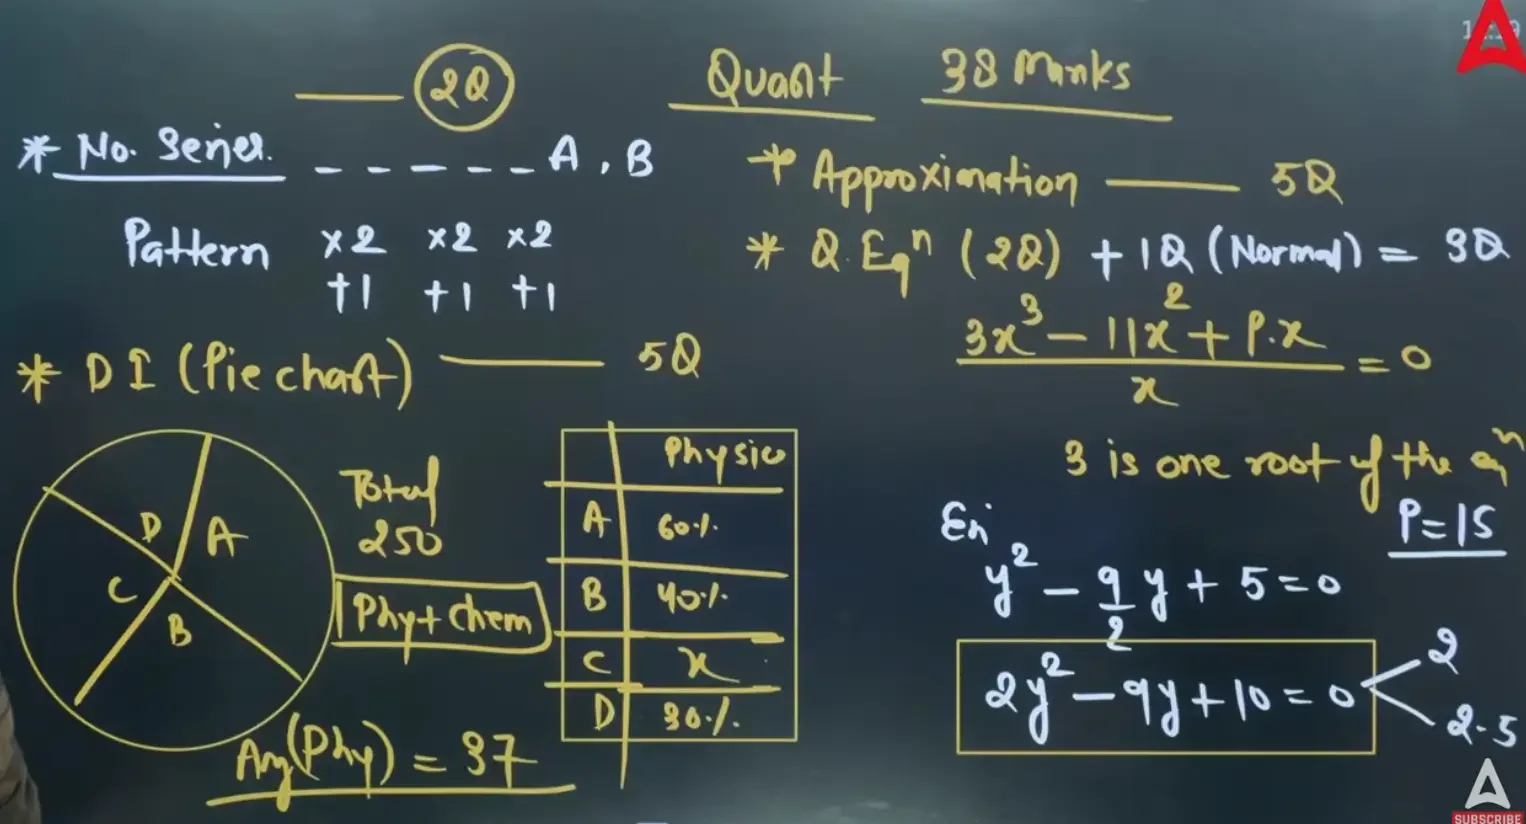 2Q
Quant 38 Marks
* No. Series. _ _ _ _ _ A, B
Pattern ×2 ×2 ×2
+1 +1 +1
* DI (Pie chart) —— 5Q
D A
C B
Total
250
Phy + Chem
Physic
A 60%
B 40%
C x
D 30%
Avg(Phy) = 37
* Approximation —— 5Q
* Q.Eqⁿ (2Q) + 1Q (Normal) = 3Q
3x³ - 11x² + P.x
x
= 0
3 is one root of the eqⁿ
P = 15
Eqⁿ
y² - 9/2 y + 5 = 0
2y² - 9y + 10 = 0
2
2.5
SUBSCRIBE